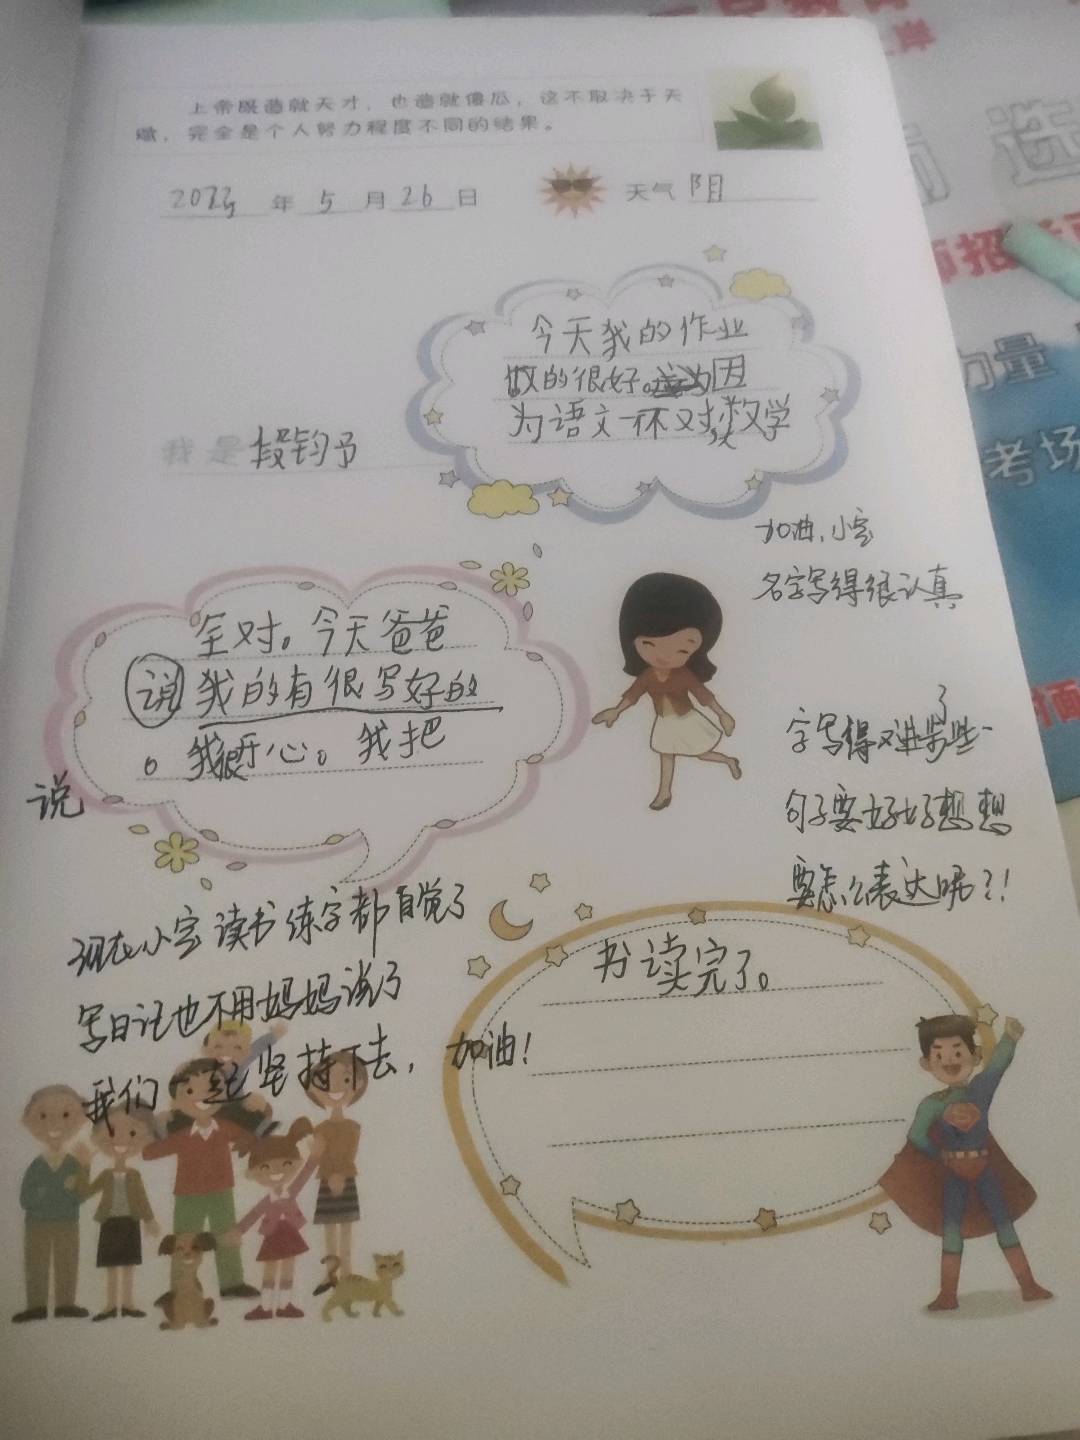 上帝既造就天才，也造就傻瓜，这不取决于天
赋，完全是个人努力程度不同的结果。
年 5 月 26 日 天气 阴
今天我的作业
做的很好。因
为语文一不对，数学
我是 段钧予
加油，小宝
名字写得很认真
全对。今天爸爸
说我的有很写好的
。我很开心。我把
说
字写得又进步了些
句子要好好想想
要怎么表达呢？！
现在小宝读书练字都自觉了
写日记也不用妈妈说了
我们一起坚持下去，加油！
书读完了。
选
师招
力量
考场